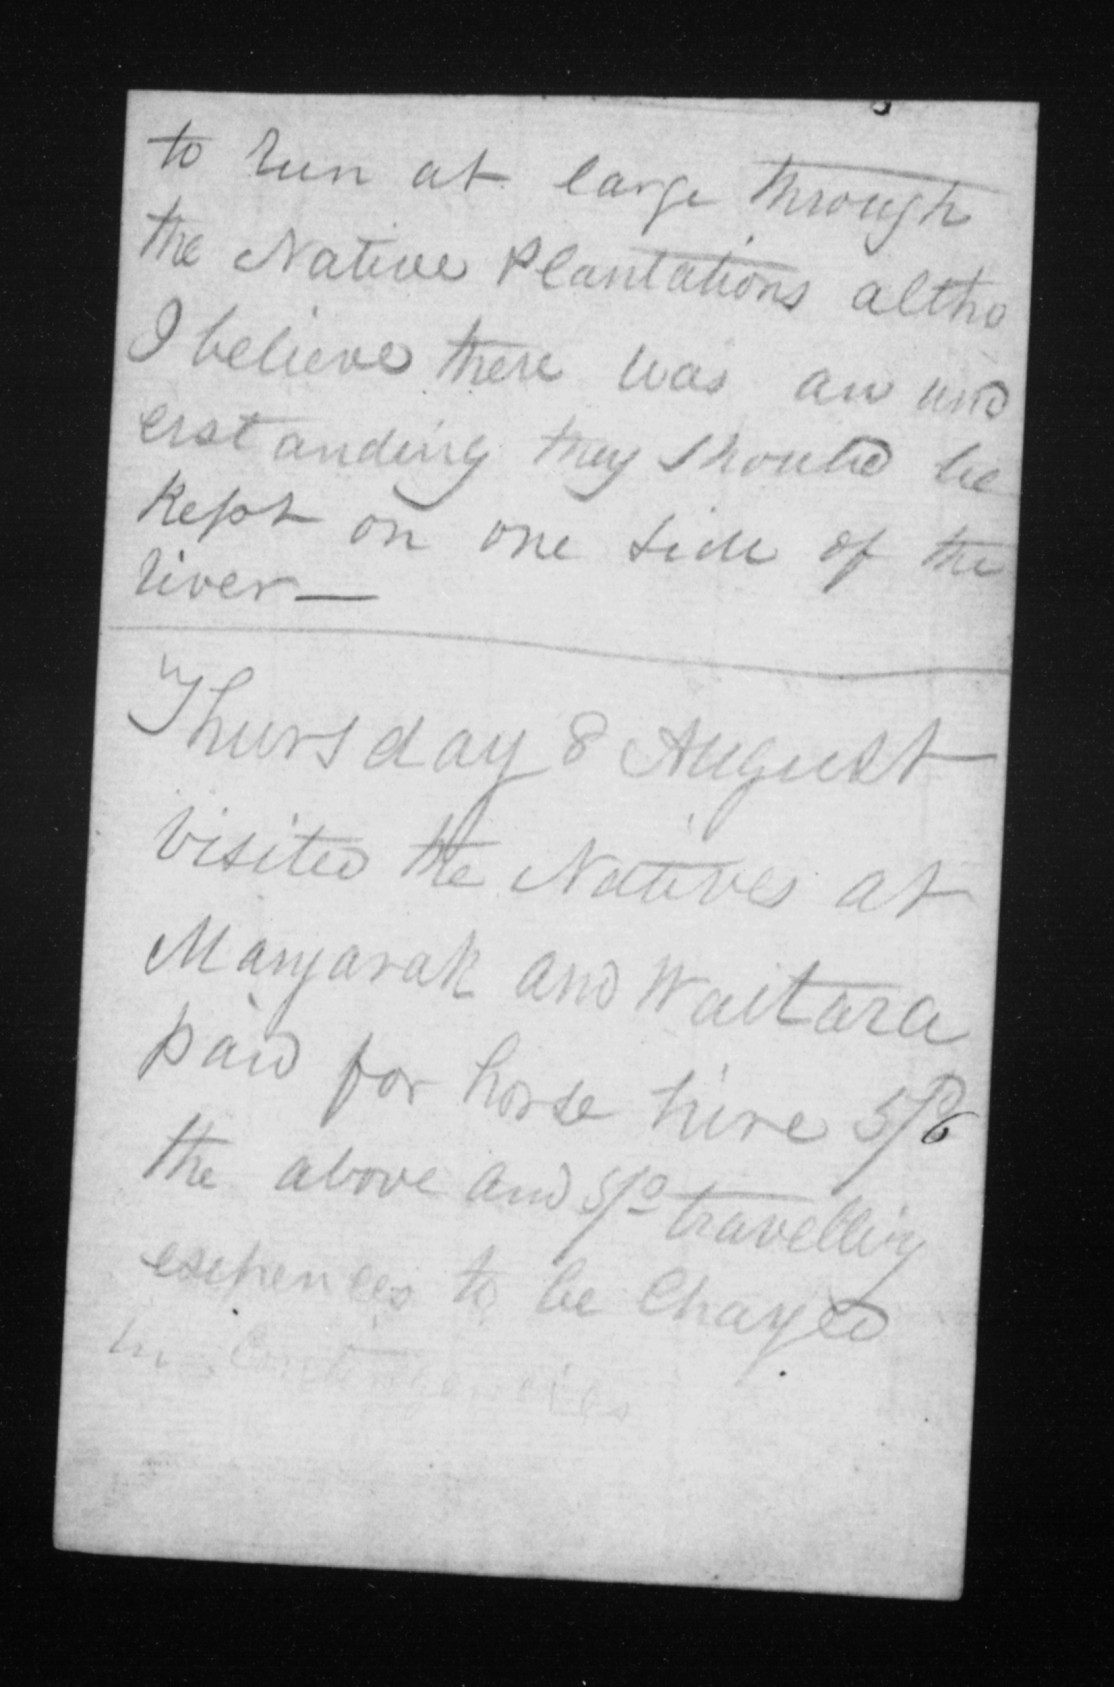 to run at large through
the Native Plantations altho
I believe there was an und
erstanding they should be
kept on one side of the
river—
Thursday 8 August
visited the Natives at
Mangarak and Waitara
paid for horse hire 5/6
the above and 5/0 travelling
expences to be Charged
in Contingencies